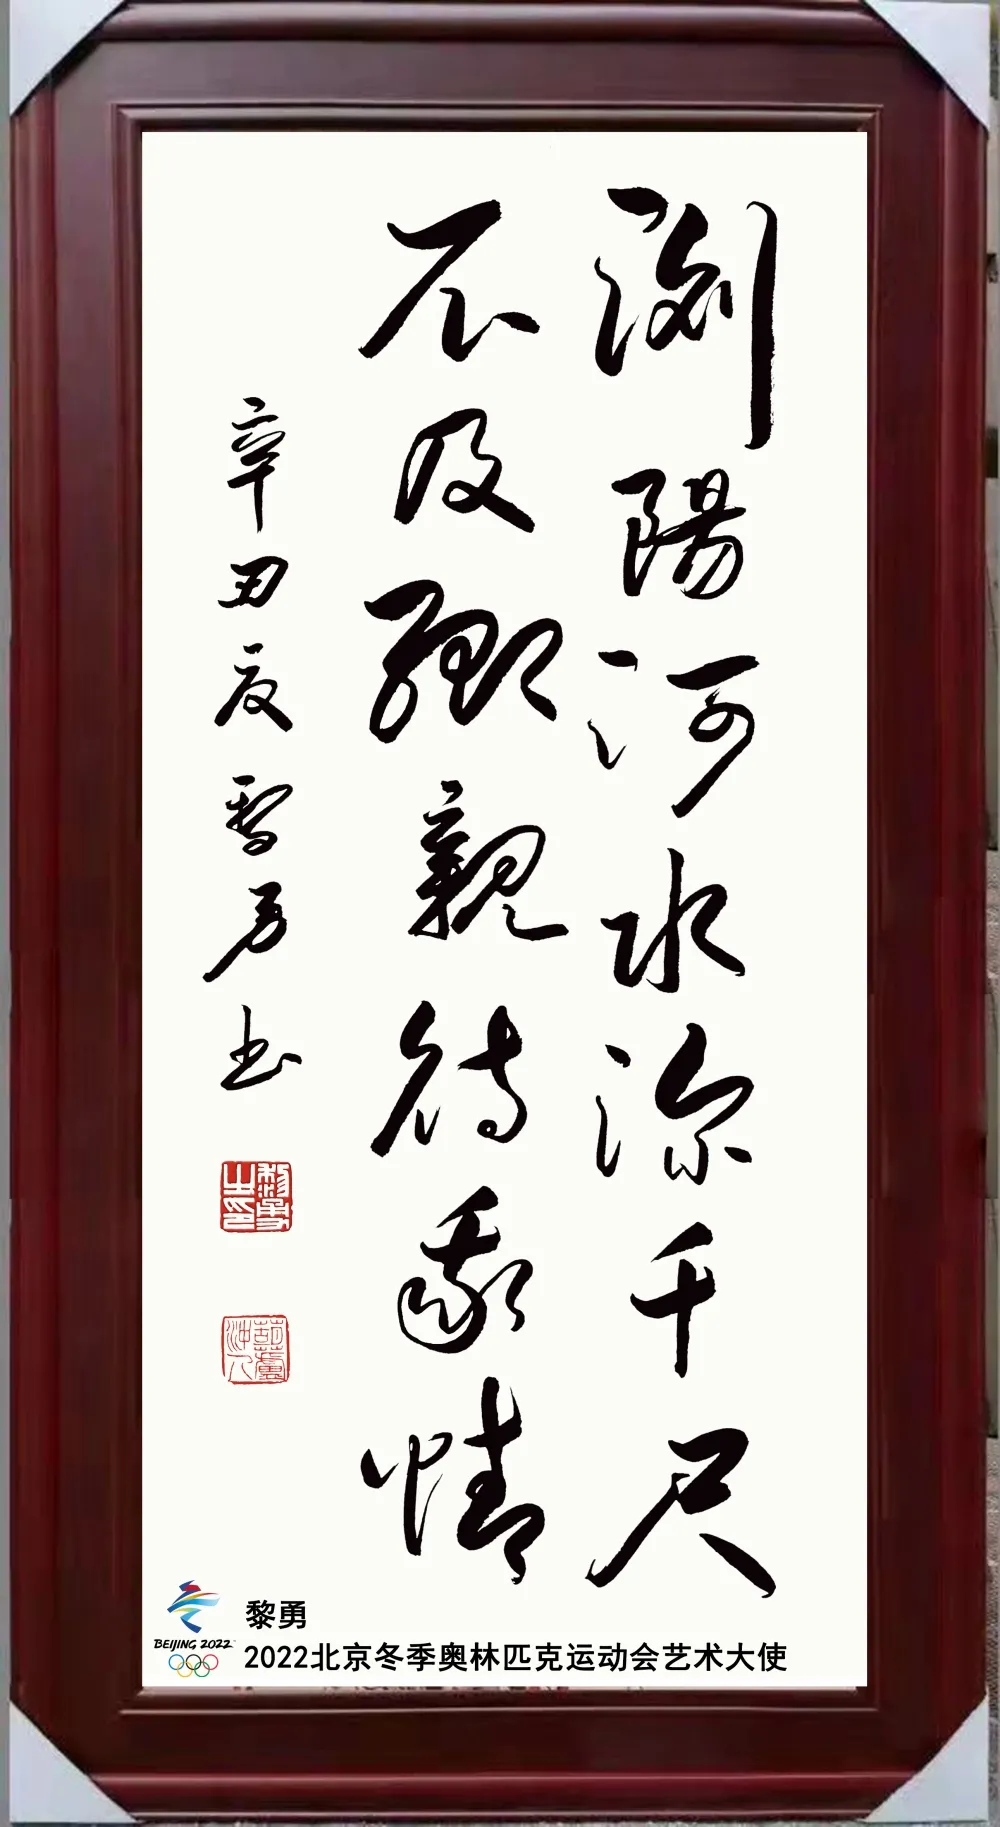 浏陽河水深千尺
不及鄉親待我情
辛丑夏黎勇书
黎勇之印
葫蘆沖人
BEIJING 2022
黎勇
2022北京冬季奥林匹克运动会艺术大使